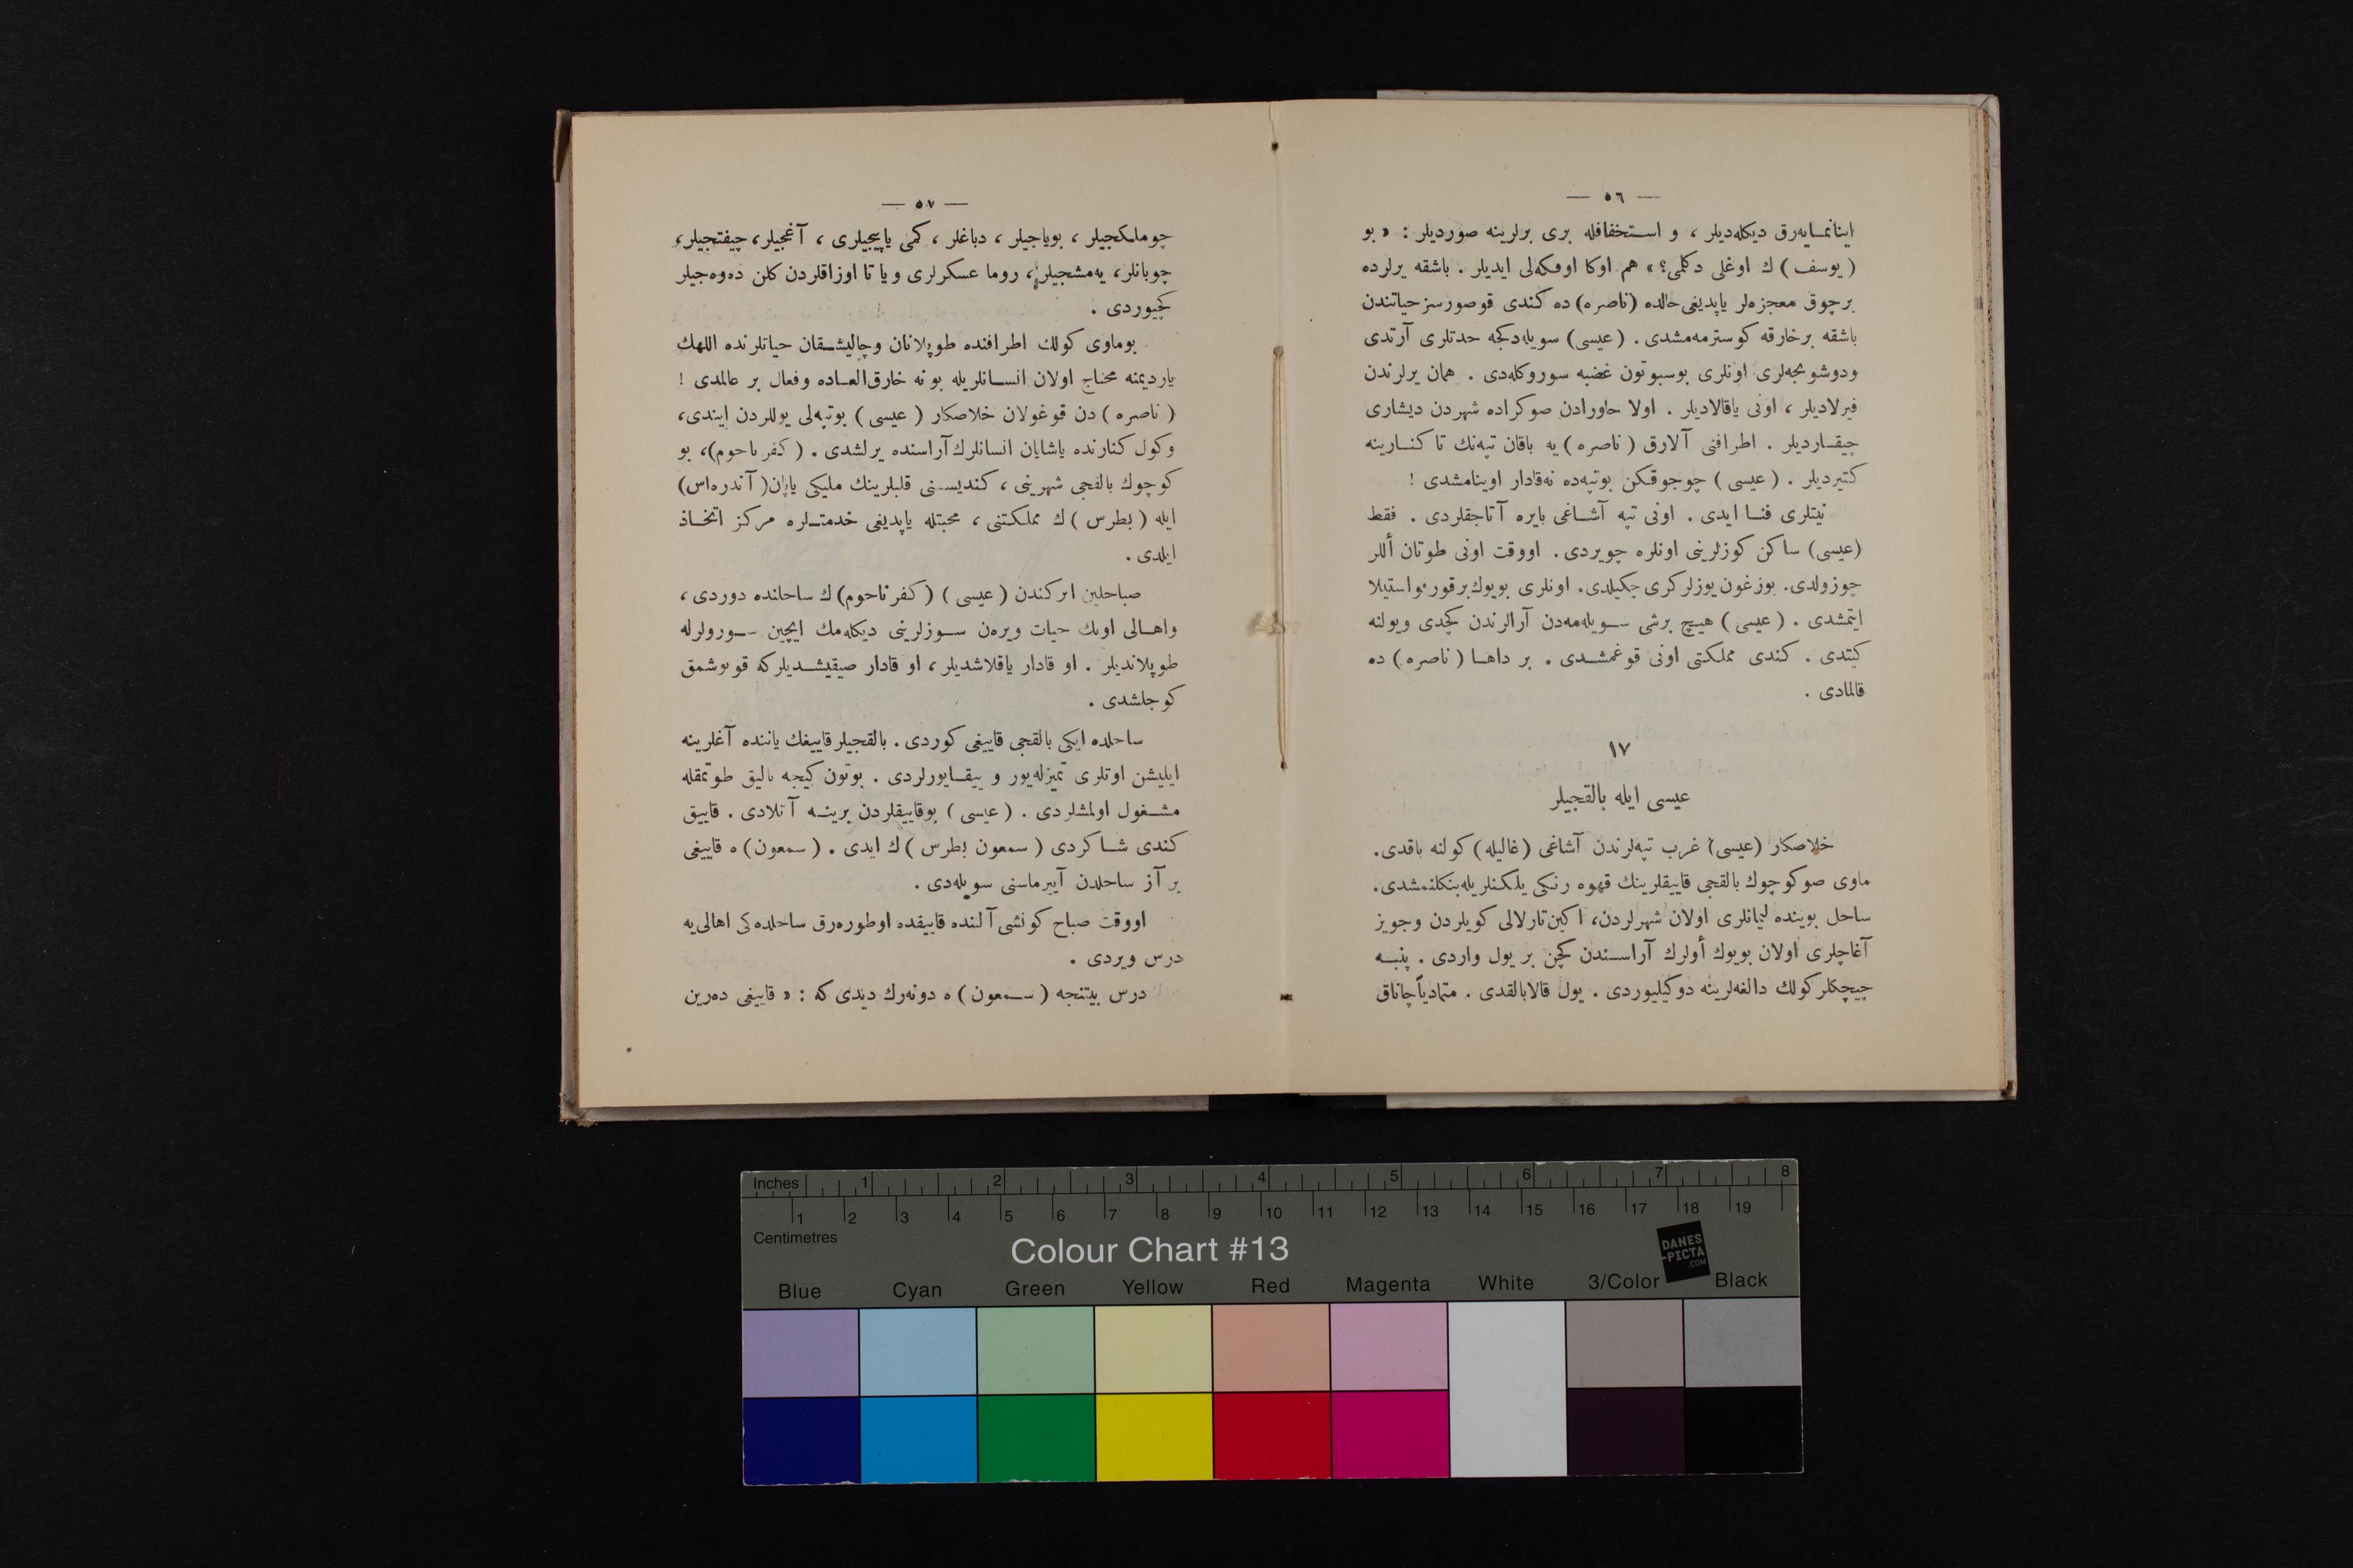 — ٥٦ —
اینانمایه‌رق دیکله‌دیلر ، و استخفافله بری برلرینه صوردیلر : « بو
( یوسف ) ك اوغلی دكلمی؟ » هم اوکا اوفكه‌لی ایدیلر . باشقه یرلرده
برچوق معجزه‌لر یاپدیغی حالده (ناصره) ده کندی قوصورسز حیاتندن
باشقه برخارقه کوسترمه‌مشدی . (عیسی) سویله‌دکجه حدتلری آرتدی
ودوشونجه‌لری اونلری بوسبوتون غضبه سوروکله‌دی . همان یرلرندن
فیرلادیلر ، اونی یاقالادیلر . اولا حاورادن صوکراده شهردن دیشاری
چیقاردیلر . اطرافنی آلارق ( ناصره ) یه باقان تپه‌نك تا کنارینه
کتیردیلر . ( عیسی ) چوجوقکن بوتپه‌ده نه‌قادار اوینامشدی !
نیتلری فنا ایدی . اونی تپه آشاغی بایره آتاجقلردی . فقط
(عیسی) ساکن کوزلرینی اونلره چویردی . اووقت اونی طوتان أللر
چوزولدی. بوزغون یوزلر کری چکیلدی. اونلری بویوك برقورقو استیلا
ایتمشدی . ( عیسی ) هیچ برشی سویله‌مه‌دن آرالرندن کچدی ویولنه
کیتدی . کندی مملکتی اونی قوغمشدی . بر داها ( ناصره ) ده
قالمادی .
١٧
عیسی ایله بالقجیلر
خلاصکار (عیسی) غرب تپه‌لرندن آشاغی (غالیله) کولنه باقدی.
ماوی صوکوچوك بالقجی قاییقلرینك قهوه رنکی یلکنلریله بنکلنمشدی.
ساحل بوینده لیمانلری اولان شهرلردن، اکین تارلالی کویلردن وجویز
آغاچلری اولان بویوك أولرك آراسندن کچن بر یول واردی . پنبه
چیچکلر کولك دالغه‌لرینه دوکیلیوردی . یول قالابالقدی . متمادیاً چاناق
— ٥٧ —
چوملکجیلر ، بویاجیلر ، دباغلر ، کمی یاپیجیلری ، آغجیلر، چیفتجیلر،
چوبانلر، یه‌مشجیلر، روما عسکرلری ویا تا اوزاقلردن کلن ده‌وه‌جیلر
کچیوردی .
بوماوی کولك اطرافنده طوپلانان وچالیشقان حیاتلرنده اللهك
یاردیمنه محتاج اولان انسانلریله بو نه خارق‌العاده وفعال بر عالمدی !
( ناصره ) دن قوغولان خلاصکار ( عیسی ) بوتپه‌لی یوللردن ایندی،
وکول کنارنده یاشایان انسانلرك آراسنده یرلشدی . ( کفرناحوم)، بو
کوچوك بالقجی شهرینی ، کندیسنی قلبلرینك ملیکی یاپان( آندره‌اس)
ایله ( بطرس ) ك مملکتنی ، محبتله یاپدیغی خدمتلره مرکز اتخاذ
ایلدی .
صباحلین ارکندن ( عیسی ) (کفرناحوم) ك ساحلنده دوردی ،
واهالی اونك حیات ویره‌ن سوزلرینی دیکله‌مك ایچین سورولرله
طوپلاندیلر . او قادار یاقلاشدیلر ، او قادار صیقیشدیلرکه قونوشمق
کوجلشدی .
ساحلده ایکی بالقجی قاییغی کوردی . بالقجیلر قاییغك یاننده آغلرینه
ایلیشن اوتلری تمیزله‌یور و ییقایورلردی . بوتون کیجه بالیق طوتمقله
مشغول اولمشلردی . ( عیسی ) بوقاییقلردن برینه آتلادی . قاییق
کندی شاکردی ( سمعون بطرس ) ك ایدی . ( سمعون) ه قاییغی
بر آز ساحلدن آییرماسنی سویله‌دی .
اووقت صباح کونشی آلتنده قاییقده اوطوره‌رق ساحلده‌کی اهالی‌یه
درس ویردی .
درس بیتنجه ( سمعون ) ه دونه‌رك دیدی که : « قاییغی ده‌رین
Inches 1 2 3 4 5 6 7 8
1 2 3 4 5 6 7 8 9 10 11 12 13 14 15 16 17 18 19
Centimetres
Colour Chart #13
DANES
-PICTA
.COM
Blue Cyan Green Yellow Red Magenta White 3/Color Black